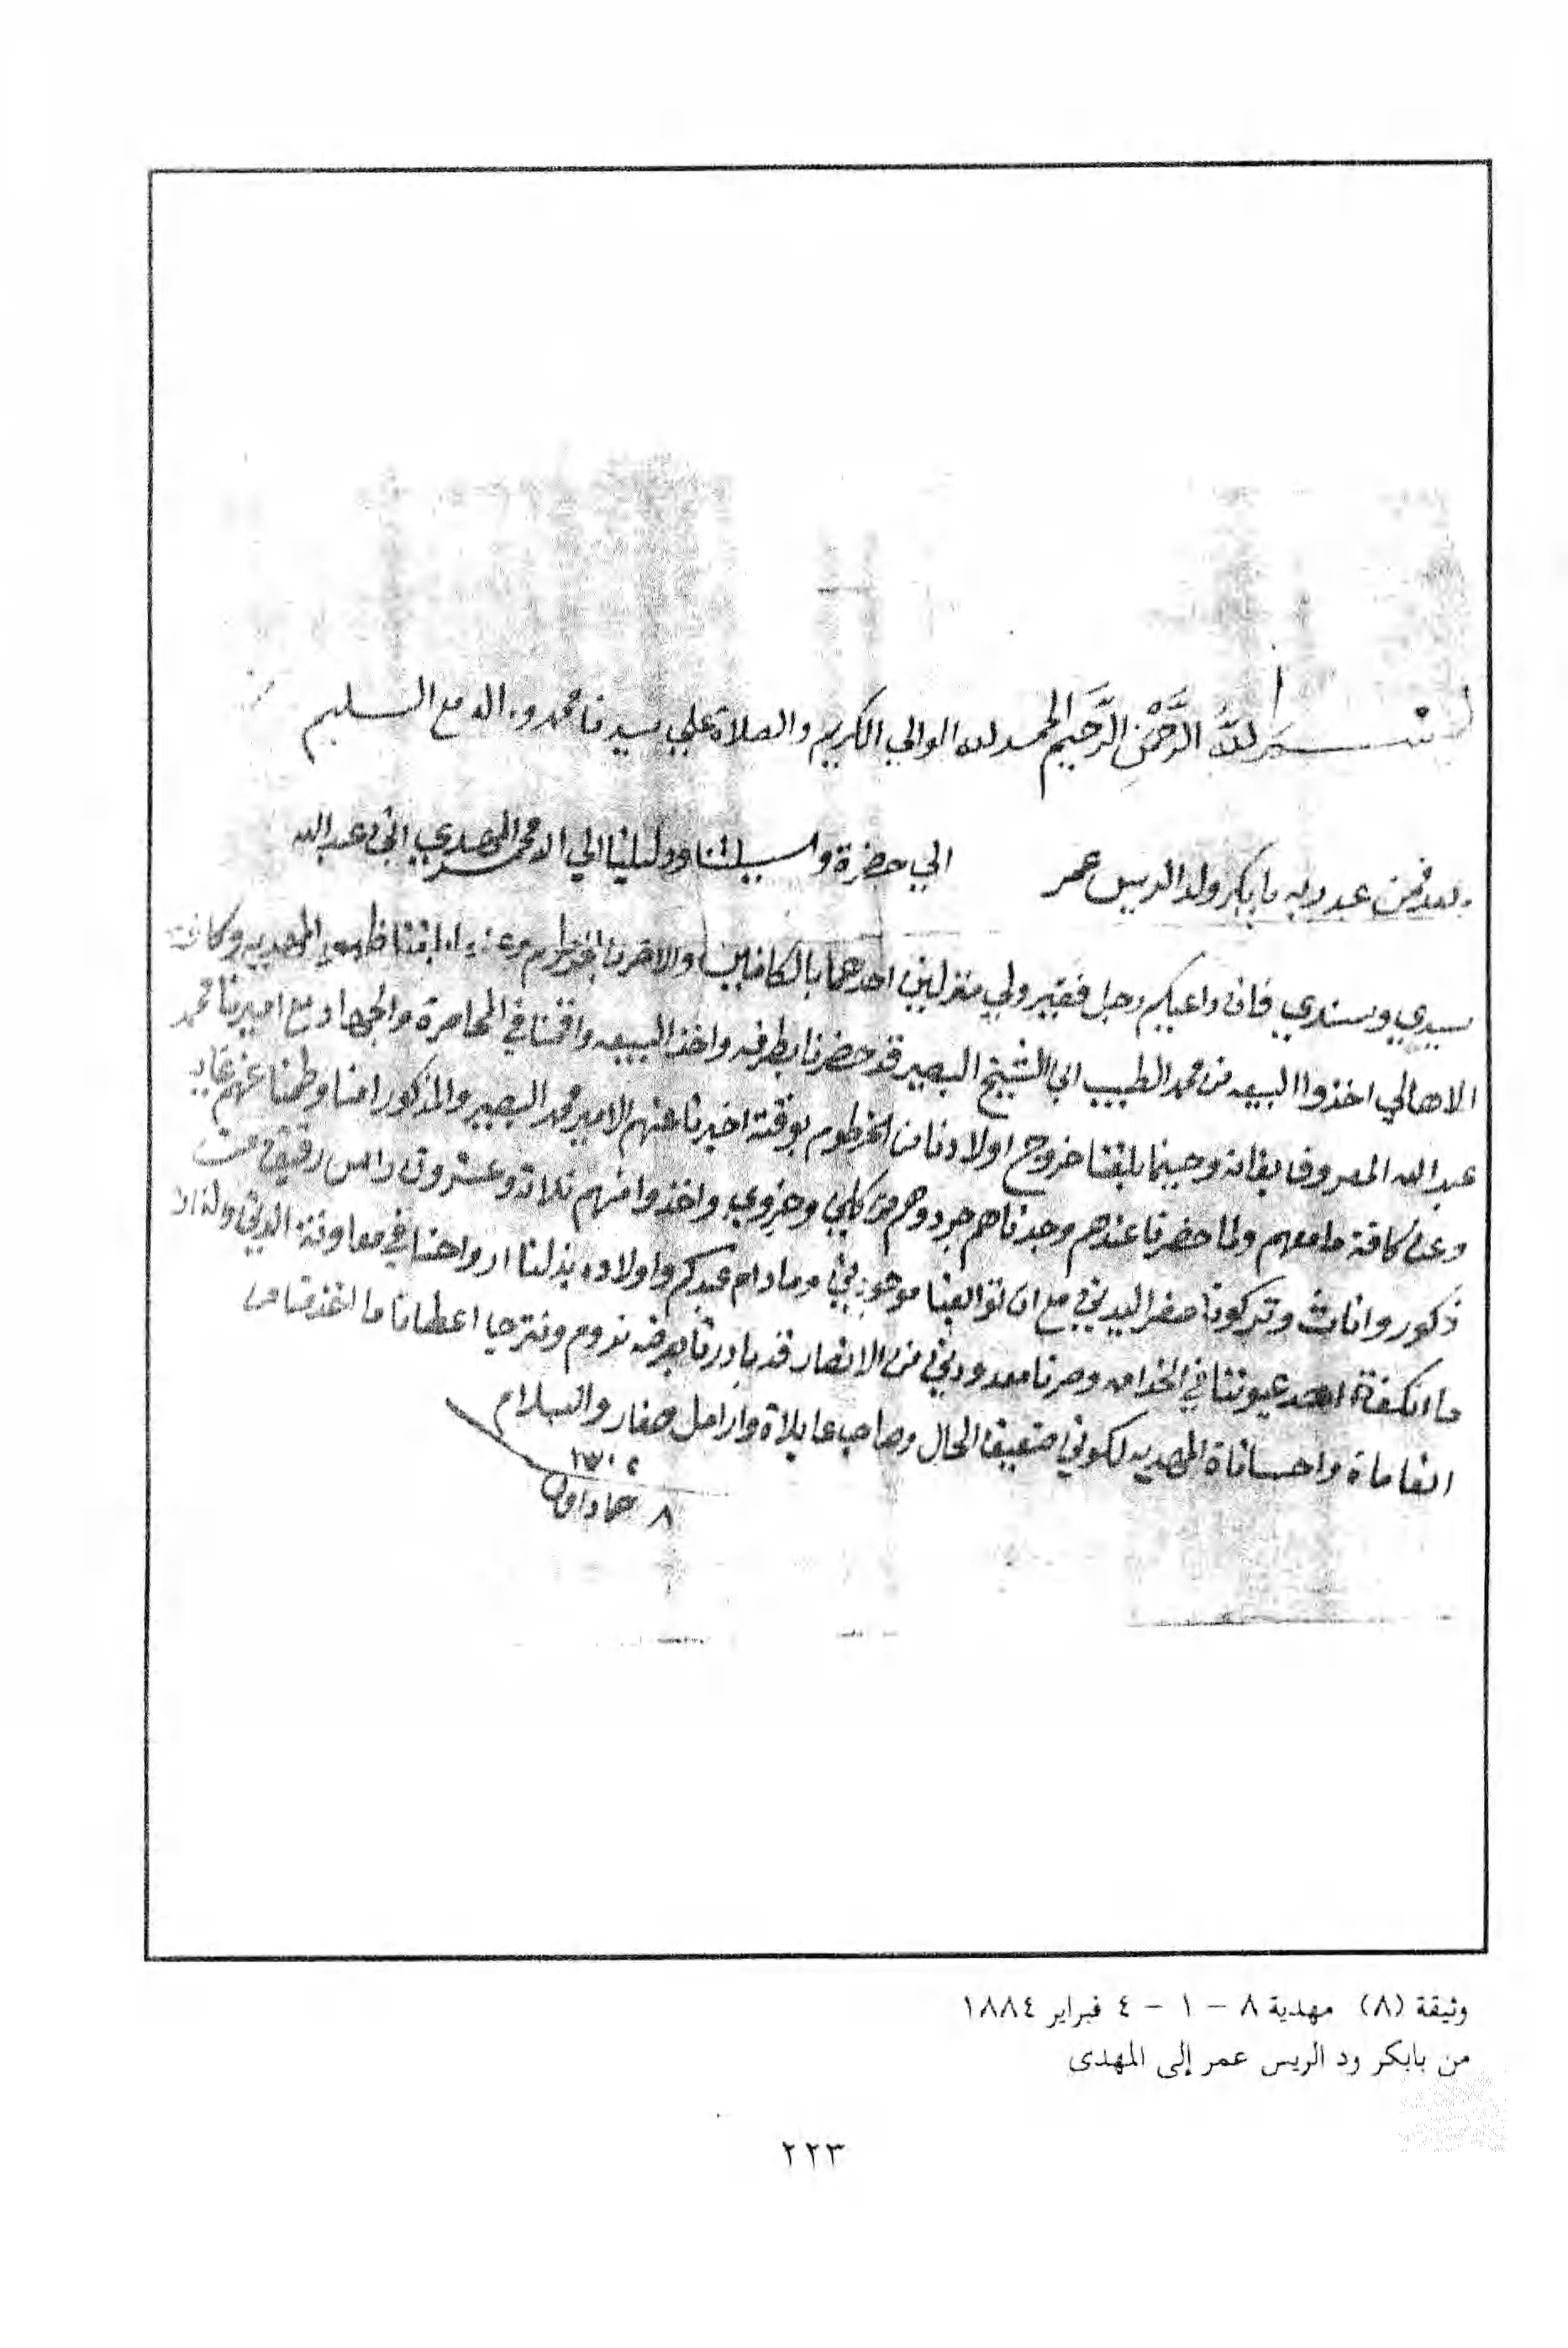 بسم الله الرحمن الرحيم الحمد لله الوالي الكريم والصلاة علي سيدنا محمد واله مع التسليم
وبعد فمن عبد ربه بابكر ولد الريس عمر الي حضرة وسيلتنا ودليلنا الي الله محمد المهدي ابن عبدالله
سيدي وسندي فان داعيكم رجل فقير ولي منزلين احدهما بالكاملين والاخر بالخرطوم وعند ما بلغنا ظهور المهديه وكافة
الاهالي اخذوا البيعه من محمد الطيب ابن الشيخ البصير قد حضرنا بطرفه واخذنا البيعه واقمنا في المحاصرة والجهاد مع اميرنا محمد
عبدالله المعروف وحينما بلغنا خروج اولادنا من الخرطوم بوقته اخبرنا عنهم الامير محمد البصير والمذكور امنا وطمنا عنهم
وعن كافة مامعهم ولما حضرنا عندهم وجدناهم جردوهم من كلي وجزوي واخذوا منهم ثلاثة وعشرون راس رقيق من
ذكور واناث وتركونا صفر اليدين مع ان توابعنا موجودين ومادام عبدكم واولاده بذلنا ارواحنا في معاونة الدين ولذالك
ما انكفة عيوننا في الخدامه وصرنا معدودين من الانصار قد بادرنا بعرضه نروم ونترجا اعطانا ما اتخذ منا من
انعاماة واحساناة المهديه لكوني ضعيف الحال وصاحب عايلاة وارامل صغار والسلام
١٣٠٢
٨ جماد اول
وثيقة (٨) مهدية ٨ – ١ – ٤ فبراير ١٨٨٤
من بابكر ود الريس عمر إلى المهدى
٢٢٣